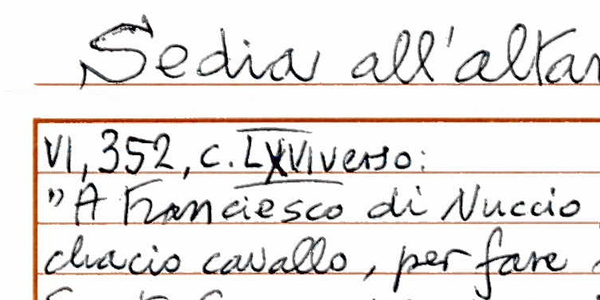 Sedia all'altar
VI, 352, c. LXVI verso:
"A Franciesco di Nuccio
chacio cavallo, per fare